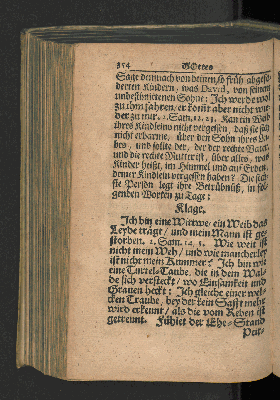 354 Göttes
Sage demnach von deinen so früh abgeso-
derten Kindern, was David, von seinem
unbestimmten Sohne: Ich werde wol
zu ihm fahren, er komt aber nicht wie-
der zu mir. 2. Sam. 12. 23. Kan ein Weib
ihres Kindleins nicht vergessen, daß sie sich
nicht erbarme, über den Sohn ihres Lei-
bes, und sollte der, der der rechte Vater
und die rechte Mutter ist, über alles, was
Kinder heißt, im Himmel und auf Erden,
deiner Kindlein vergessen haben? Die sech-
ste Person legt ihre Betrübniß, in fol-
genden Worten zu Tage:
Klage.
Ich bin eine Wittwe, ein Weib das
Leyde trägt, und mein Mann ist ge-
storben. 2. Sam. 14, 5. Wie weit ist
nicht mein Weh, und wie mancherley
ist nicht mein Kummer? Ich bin wie
eine Turtel-Taube, die in dem Wal-
de sich versteckt, wo Einsamkeit und
Grauen heckt: Ich gleiche einer wel-
cken Traube, bey der kein Safft mehr
wird erkennt, als die vom Reben ist
getrennt. Fühlet der Ehe-Stand
Pein-